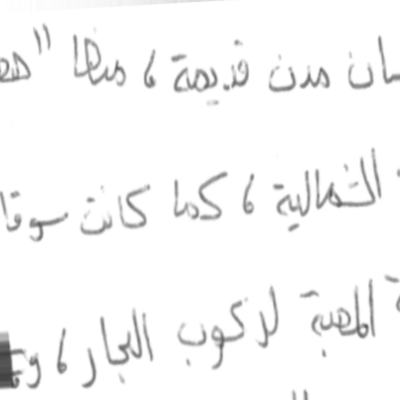 مدن قديمة ، منها "
الشمالية ، كما كانت سوقا
المحبة لركوب البحار ،